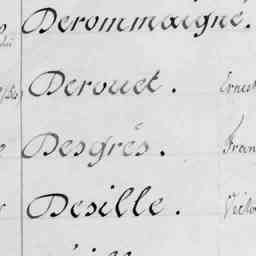 Derommaigné.
Derouet. Ernest
Desgrés. Fran
Desille. Victo